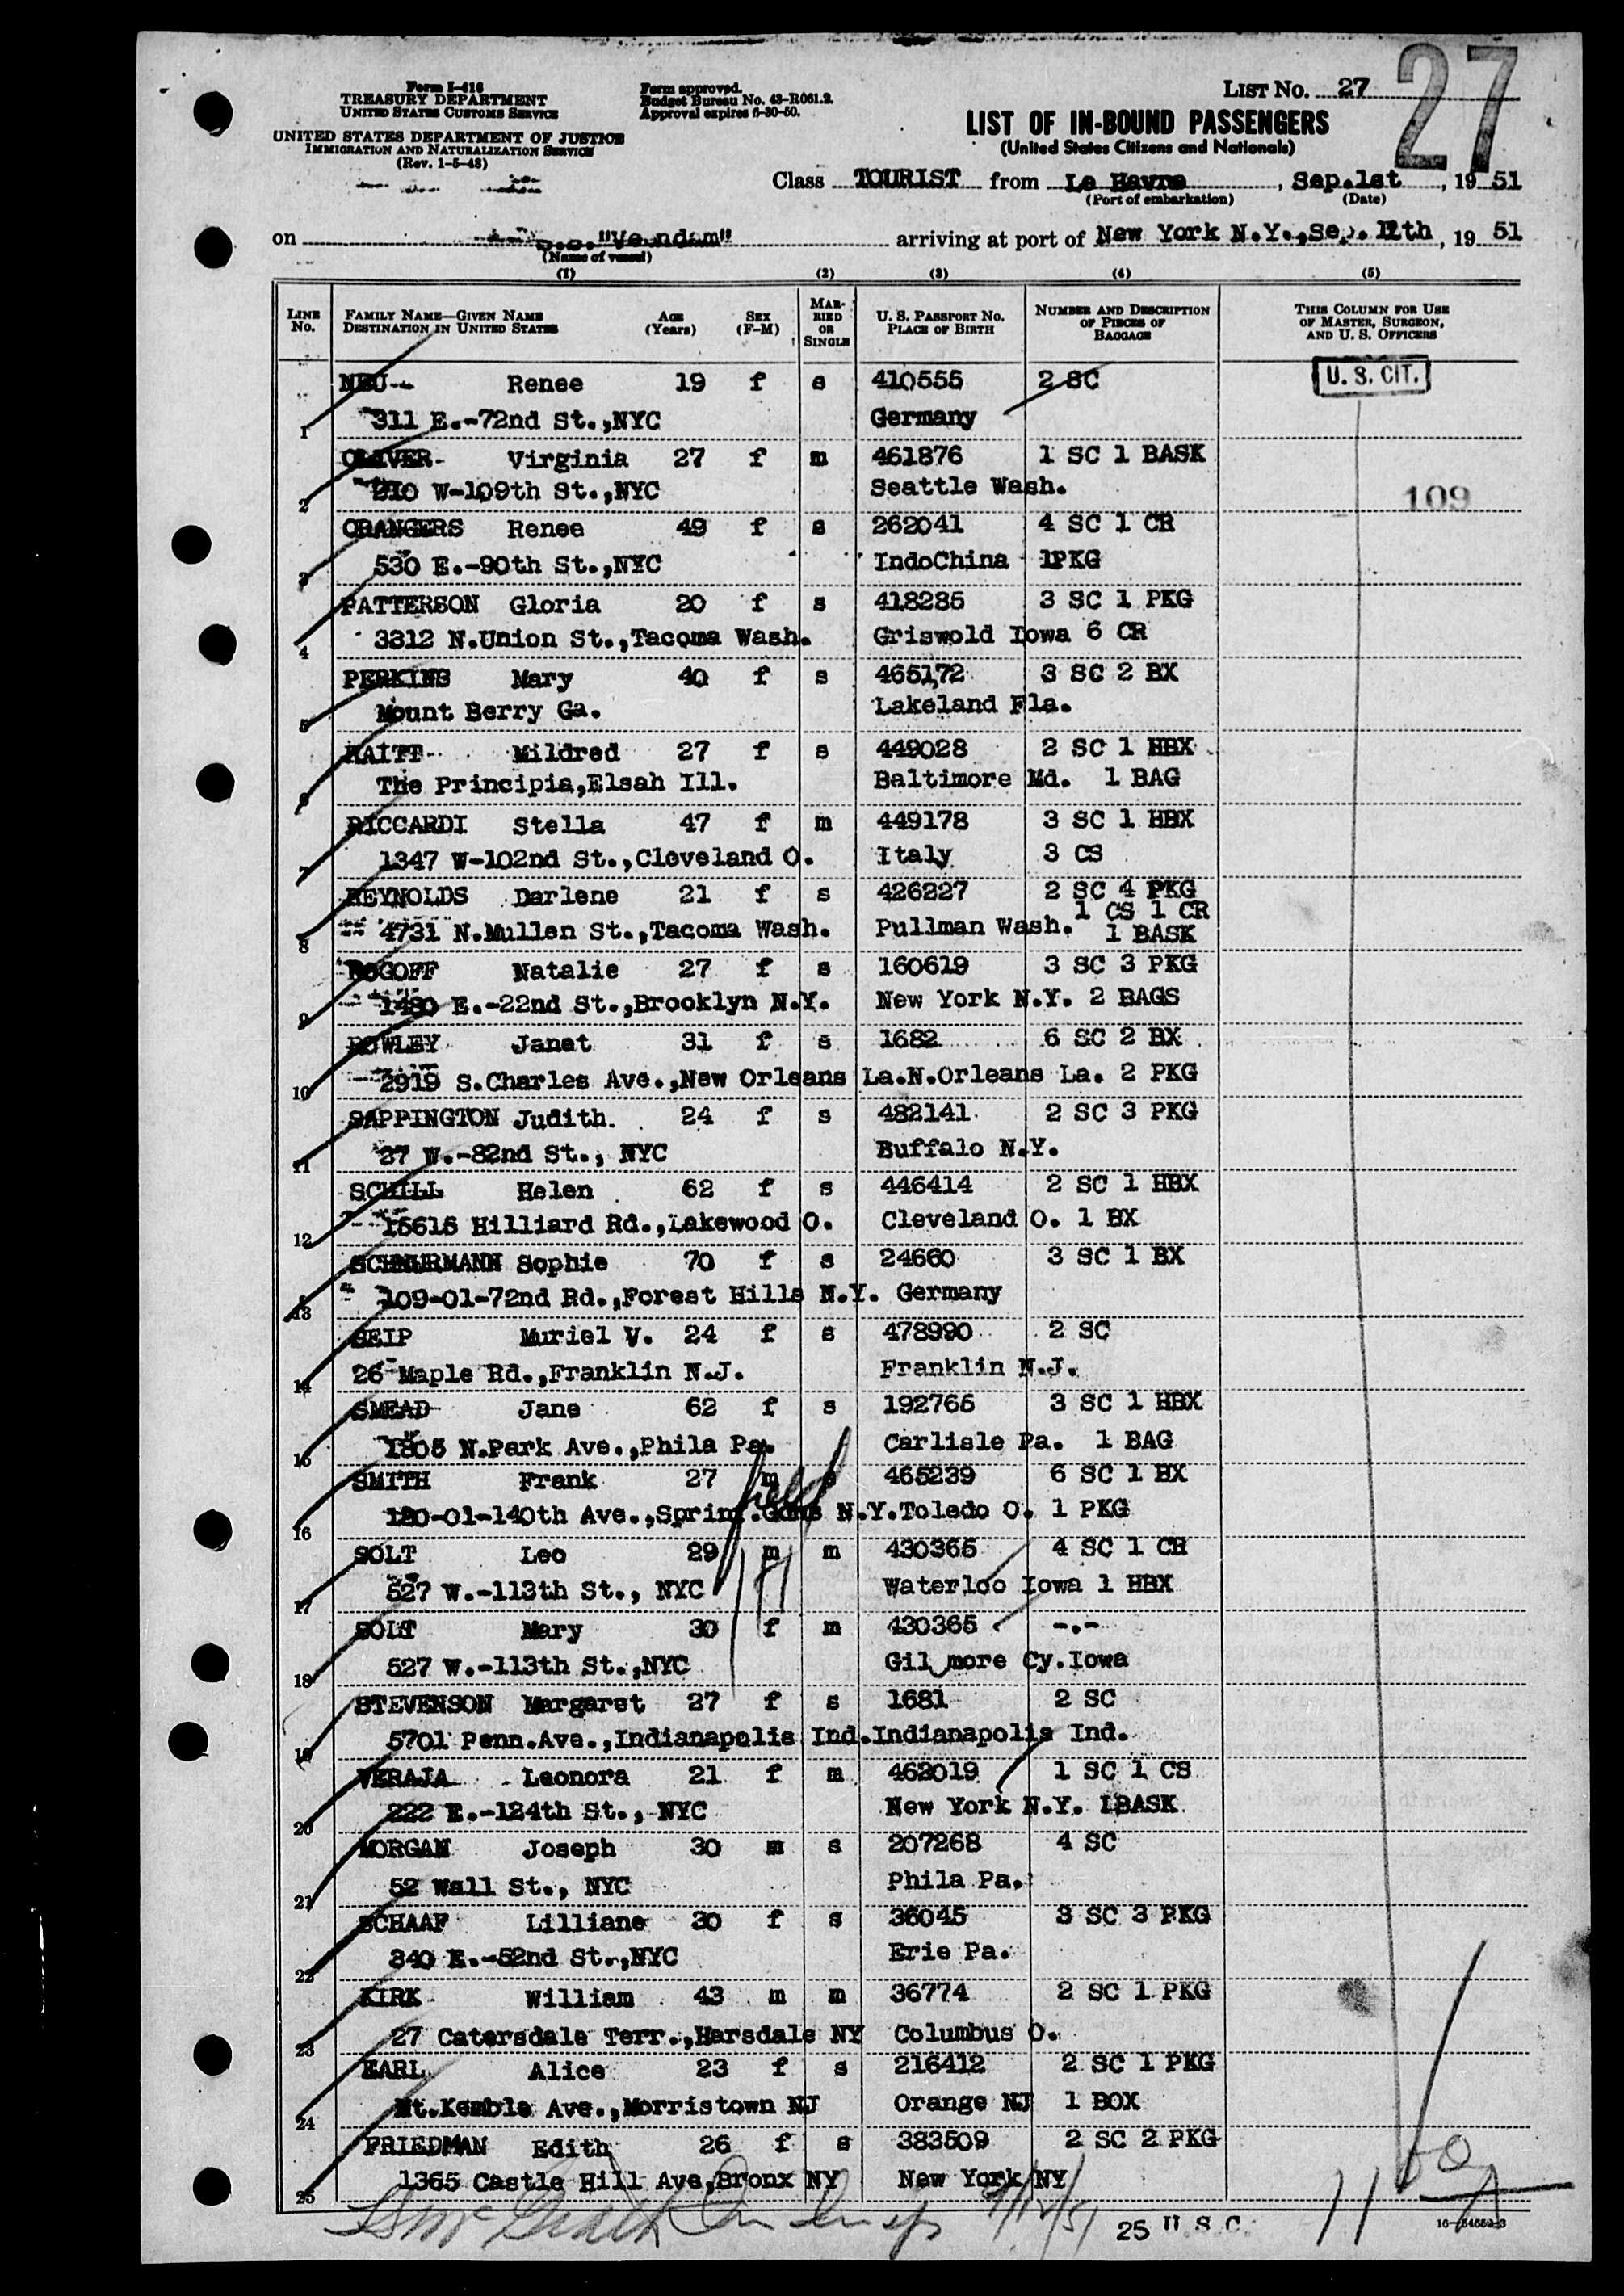 Form I-416
TREASURY DEPARTMENT
UNITED STATES CUSTOMS SERVICE
UNITED STATES DEPARTMENT OF JUSTICE
IMMIGRATION AND NATURALIZATION SERVICE
(Rev. 1-5-48)
Form approved.
Budget Bureau No. 43-R061.2.
Approval expires 6-30-50.
LIST NO. 27
27
LIST OF IN-BOUND PASSENGERS
(United States Citizens and Nationals)
Class TOURIST from Le Havre, Sep.1st, 19 51
(Port of embarkation) (Date)
on s.s."Veendam" arriving at port of New York N.Y., Sep. 12th, 19 51
(Name of vessel)
(1) (2) (3) (4) (5)
LINE No. FAMILY NAME—GIVEN NAME DESTINATION IN UNITED STATES AGE (Years) SEX (F-M) MARRIED OR SINGLE U. S. PASSPORT NO. PLACE OF BIRTH NUMBER AND DESCRIPTION OF PIECES OF BAGGAGE THIS COLUMN FOR USE OF MASTER, SURGEON, AND U. S. OFFICERS
NEU Renee 19 f s 410555 2 SC U. S. CIT.
1 311 E.-72nd St.,NYC Germany
OLIVER Virginia 27 f m 461876 1 SC 1 BASK
2 210 W-109th St.,NYC Seattle Wash. 109
ORANGERS Renee 49 f s 262041 4 SC 1 CR
3 530 E.-90th St.,NYC IndoChina 1PKG
PATTERSON Gloria 20 f s 418285 3 SC 1 PKG
4 3312 N.Union St.,Tacoma Wash. Griswold Iowa 6 CR
PERKINS Mary 40 f s 465172 3 SC 2 BX
5 Mount Berry Ga. Lakeland Fla.
RAITT Mildred 27 f s 449028 2 SC 1 HBX
6 The Principia,Elsah Ill. Baltimore Md. 1 BAG
RICCARDI Stella 47 f m 449178 3 SC 1 HBX
7 1347 W-102nd St.,Cleveland O. Italy 3 CS
REYNOLDS Darlene 21 f s 426227 2 SC 4 PKG
8 4731 N.Mullen St.,Tacoma Wash. Pullman Wash. 1 CS 1 CR
1 BASK
ROGOFF Natalie 27 f s 160619 3 SC 3 PKG
9 1480 E.-22nd St.,Brooklyn N.Y. New York N.Y. 2 BAGS
ROWLEY Janet 31 f s 1682 6 SC 2 BX
10 2919 S.Charles Ave.,New Orleans La.N.Orleans La. 2 PKG
SAPPINGTON Judith. 24 f s 482141 2 SC 3 PKG
11 27 W.-82nd St., NYC Buffalo N.Y.
SCHILL Helen 62 f s 446414 2 SC 1 HBX
12 15615 Hilliard Rd.,Lakewood O. Cleveland O. 1 BX
SCHNURMANN Sophie 70 f s 24660 3 SC 1 BX
13 109-01-72nd Rd.,Forest Hills N.Y. Germany
SEIP Muriel V. 24 f s 478990 2 SC
14 26 Maple Rd.,Franklin N.J. Franklin N.J.
SMEAD Jane 62 f s 192765 3 SC 1 HBX
15 1805 N.Park Ave.,Phila Pa. Carlisle Pa. 1 BAG
SMITH Frank 27 m s 465239 6 SC 1 BX
16 120-01-140th Ave.,Spring.Gdns N.Y.Toledo O. 1 PKG
field
SOLT Leo 29 m m 430365 4 SC 1 CR
17 527 W.-113th St., NYC Waterloo Iowa 1 HBX
SOLT Mary 30 f m 430365 -.-
18 527 W.-113th St.,NYC Gil more Cy.Iowa
STEVENSON Margaret 27 f s 1681 2 SC
19 5701 Penn.Ave.,Indianapolis Ind.Indianapolis Ind.
VERAJA Leonora 21 f m 462019 1 SC 1 CS
20 222 E.-124th St., NYC New York N.Y. 1BASK
MORGAN Joseph 30 m s 207268 4 SC
21 52 Wall St., NYC Phila Pa.
SCHAAF Lilliane 30 f s 36045 3 SC 3 PKG
22 340 E.-52nd St.,NYC Erie Pa.
KIRK William 43 m m 36774 2 SC 1 PKG
23 27 Catersdale Terr.,Harsdale NY Columbus O.
EARL Alice 23 f s 216412 2 SC 1 PKG
24 Mt.Kemble Ave.,Morristown NJ Orange NJ 1 BOX
FRIEDMAN Edith 26 f s 383509 2 SC 2 PKG
25 1365 Castle Hill Ave,Bronx NY New York NY
9/12/51
25 U.S.C. 16—54652-3